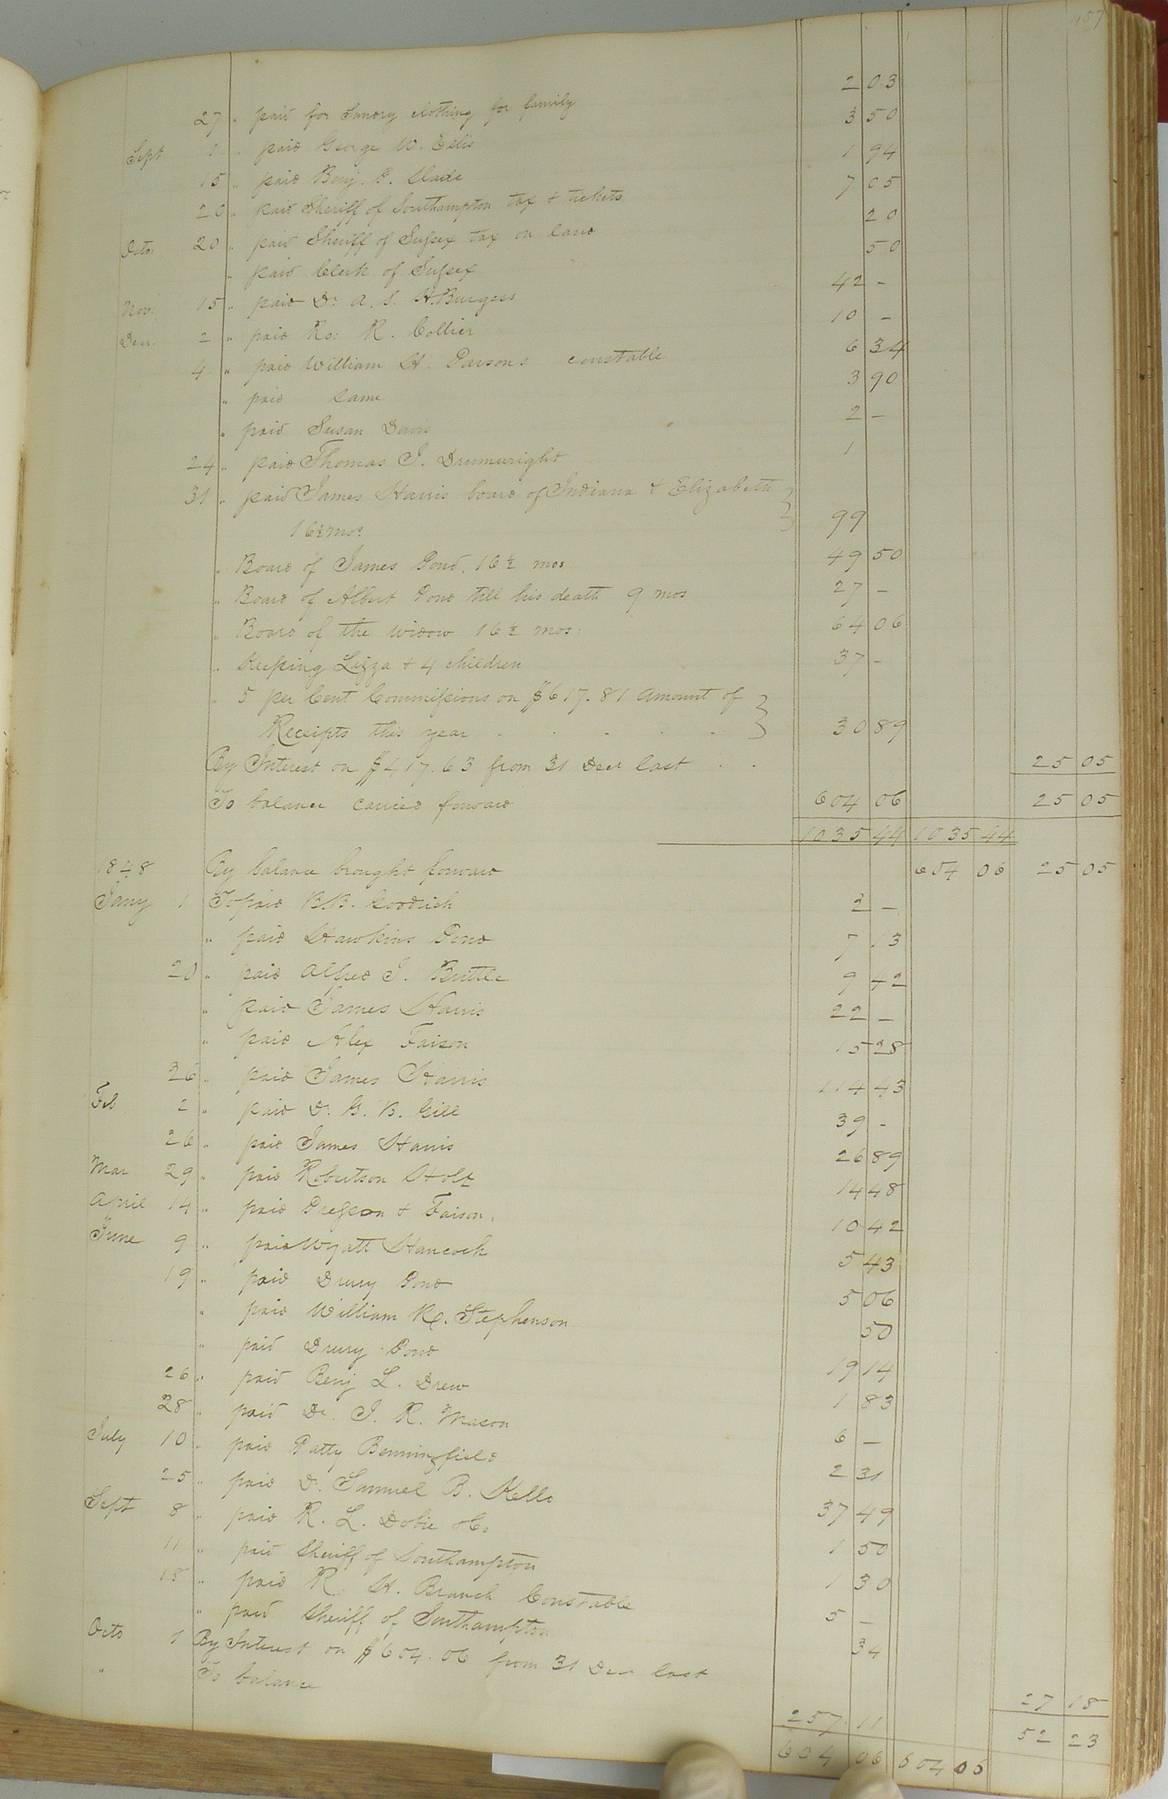 157
27 " paid for Sundry clothing for family 2 03
Sept 1 " paid George W. Ellis 3 50
15 " paid Benj. P. Slade 1 94
20 " paid Sheriff of Southampton tax & tickets 7 05
Octo 20 " paid Sheriff of Sussex tax on land 20
" paid Clerk of Sussex 50
Nov: 15 " paid Dr. A. S. H. Burgess 42 -
Decr. 2 " paid Ro: R. Collier 10 -
4 " paid William H. Parsons constable 6 34
" paid Same 3 90
" paid Susan Davis 2 -
24 " paid Thomas J. Drumwright 1
31 " paid James Harris board of Indiana & Elizabeth
16½ mos 99
" Board of James Pond, 16½ mos 49 50
" Board of Albert Pond till his death 9 mos 27 -
" Board of the widow 16½ mos: 64 06
" Keeping Lizza & 4 children 37 -
" 5 per Cent Commissions on $617.81 amount of
Receipts this year 30 89
By Interest on $417.63 from 31 Decr last 25 05
To balance carried forward 604 06 25 05
1035 44 1035 44
1848 By balance brought forward 604 06 25 05
Jany 1 To paid B.B. Goodrich 2 -
" paid Hawkins Pond 7 13
20 " paid Alfred J. Buttle 9 42
" paid James Harris 22 -
" paid Alex Faison 15 28
26 " paid James Harris 114 43
Feb 2 " paid Dr. G. B. Gill 39 -
26 " paid James Harris 26 89
Mar 29 " paid Robertson Holt 14 48
April 14 " paid Pregson & Faison. 10 42
June 9 " paid Wyatt Hancock 5 43
19 " paid Drury Pond 5 06
" paid William R. Stephenson 50
" paid Drury Pond 19 14
26 " paid Benj L. Drew 1 83
28 " paid Dr. J. R. Mason 6 -
July 10 " paid Patty Benningfield 2 31
25 " paid Dr. Samuel B. Kello 37 49
Sept 8 " paid R. L. Dobie &Co 1 50
11 " paid Sheriff of Southampton 1 30
18 " paid R. H. Branch Constable 5 -
" paid Sheriff of Southampton 34
Octo 1 By Interest on $604.06 from 31 Decr last 27 18
" To balance 257 11 52 23
604 06 604 06